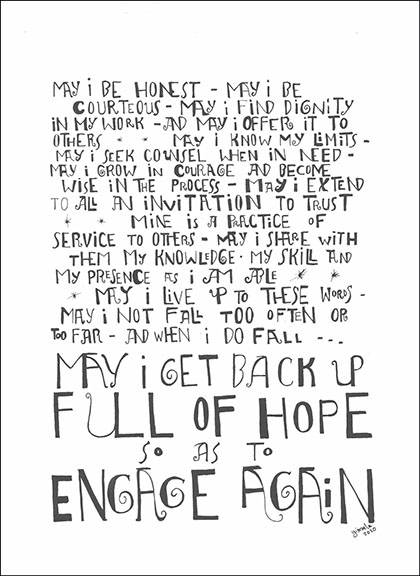 MAY i BE HONEST - MAY i BE
COURTEOUS - MAY i FIND DIGNITY
IN MY WORK - AND MAY i OFFER IT TO
OTHERS * * MAY i KNOW MY LIMITS -
MAY i SEEK COUNSEL WHEN IN NEED -
MAY i GROW IN COURAGE AND BECOME
WISE IN THE PROCESS - MAY i EXTEND
TO ALL AN INVITATION TO TRUST
* * MINE IS A PRACTICE OF
SERVICE TO OTHERS - MAY i SHARE WITH
THEM MY KNOWLEDGE · MY SKILL AND
MY PRESENCE AS i AM ABLE * *
* MAY i LIVE UP TO THESE WORDS -
MAY i NOT FALL TOO OFTEN OR
TOO FAR - AND WHEN i DO FALL ---
MAY i GET BACK UP
FULL OF HOPE
SO AS TO
ENGAGE AGAiN
2020